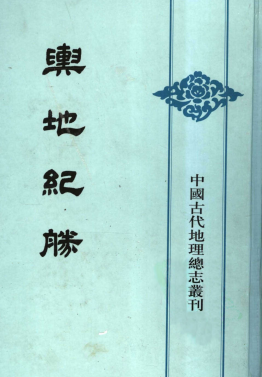 輿地紀勝
中國古代地理總志叢刊